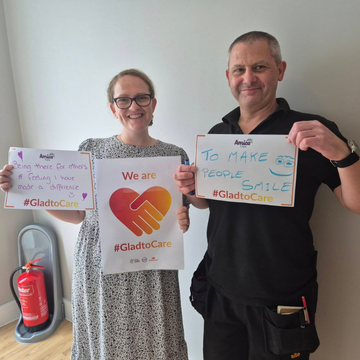 Amica
Being there for others
& feeling I have
made a difference
#GladtoCare
We are
#GladtoCare
Amica
TO MAKE
PEOPLE
SMILE
#GladtoCare